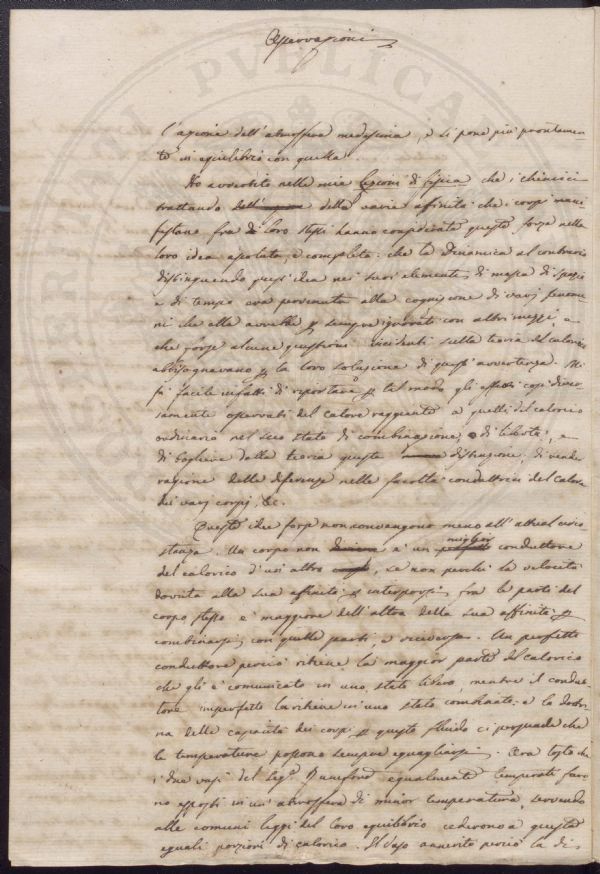 Osservazioni
l'azione dell'atmosfera medesima, e si pone più prontamen-
te in equilibrio con quella.
Ho avvertito nelle mie Lezioni di fisica che i chimici
trattando della varie affinità che i corpi mani
festano fra di loro stessi hanno considerato questa forza nella
loro idea assoluta, e completa: che la Dinamica al contrario
distinguendo quest'idea nei suoi elementi di massa di spazio
e di tempo era pervenuta alla cognizione di varj fenome-
ni che alla sempre ignorati con altri mezzi, e
che forse alcune quistioni sulla teoria del calorico
abbisognavano p la loro soluzione di quest'avvertenza. Mi
fu facile infatti di riportare p tal modo gli effetti così diver
samente operati del calore raggiante a quelli del calorico
ordinario nel suo stato di combinazione, o di libertà, e
di togliere dalla teoria questa distinzione; di render
ragione delle differenze nelle facoltà conduttrici del calore
dei varj corpi, &c.
Queste idee forse non convengono meno all'attual circo
stanza. Un corpo non è un miglior conduttore
del calorico d'un altro, se non perchè la velocità
dovuta alla sua affinità p interporsi fra le parti del
corpo stesso è maggiore dell'altra della sua affinità p
combinarsi con quelle parti, e viceversa. Un perfetto
conduttore perciò ritiene la maggior parte del calorico
che gli è comunicato in uno stato libero, mentre il condut
tore imperfetto lo ritiene in uno stato combinato: e la dottri
na delle capacità dei corpi p questo fluido ci persuade che
le temperature possono sempre eguagliarsi. Ora tosto che
i due vasi del Sig.r Rumford egualmente temperati furo
no esposti in un'atmosfera di minor temperatura, servendo
alle comuni leggi del loro equilibrio cederono a questa
eguali porzioni di calorico. Il vaso annerito perciò la di-